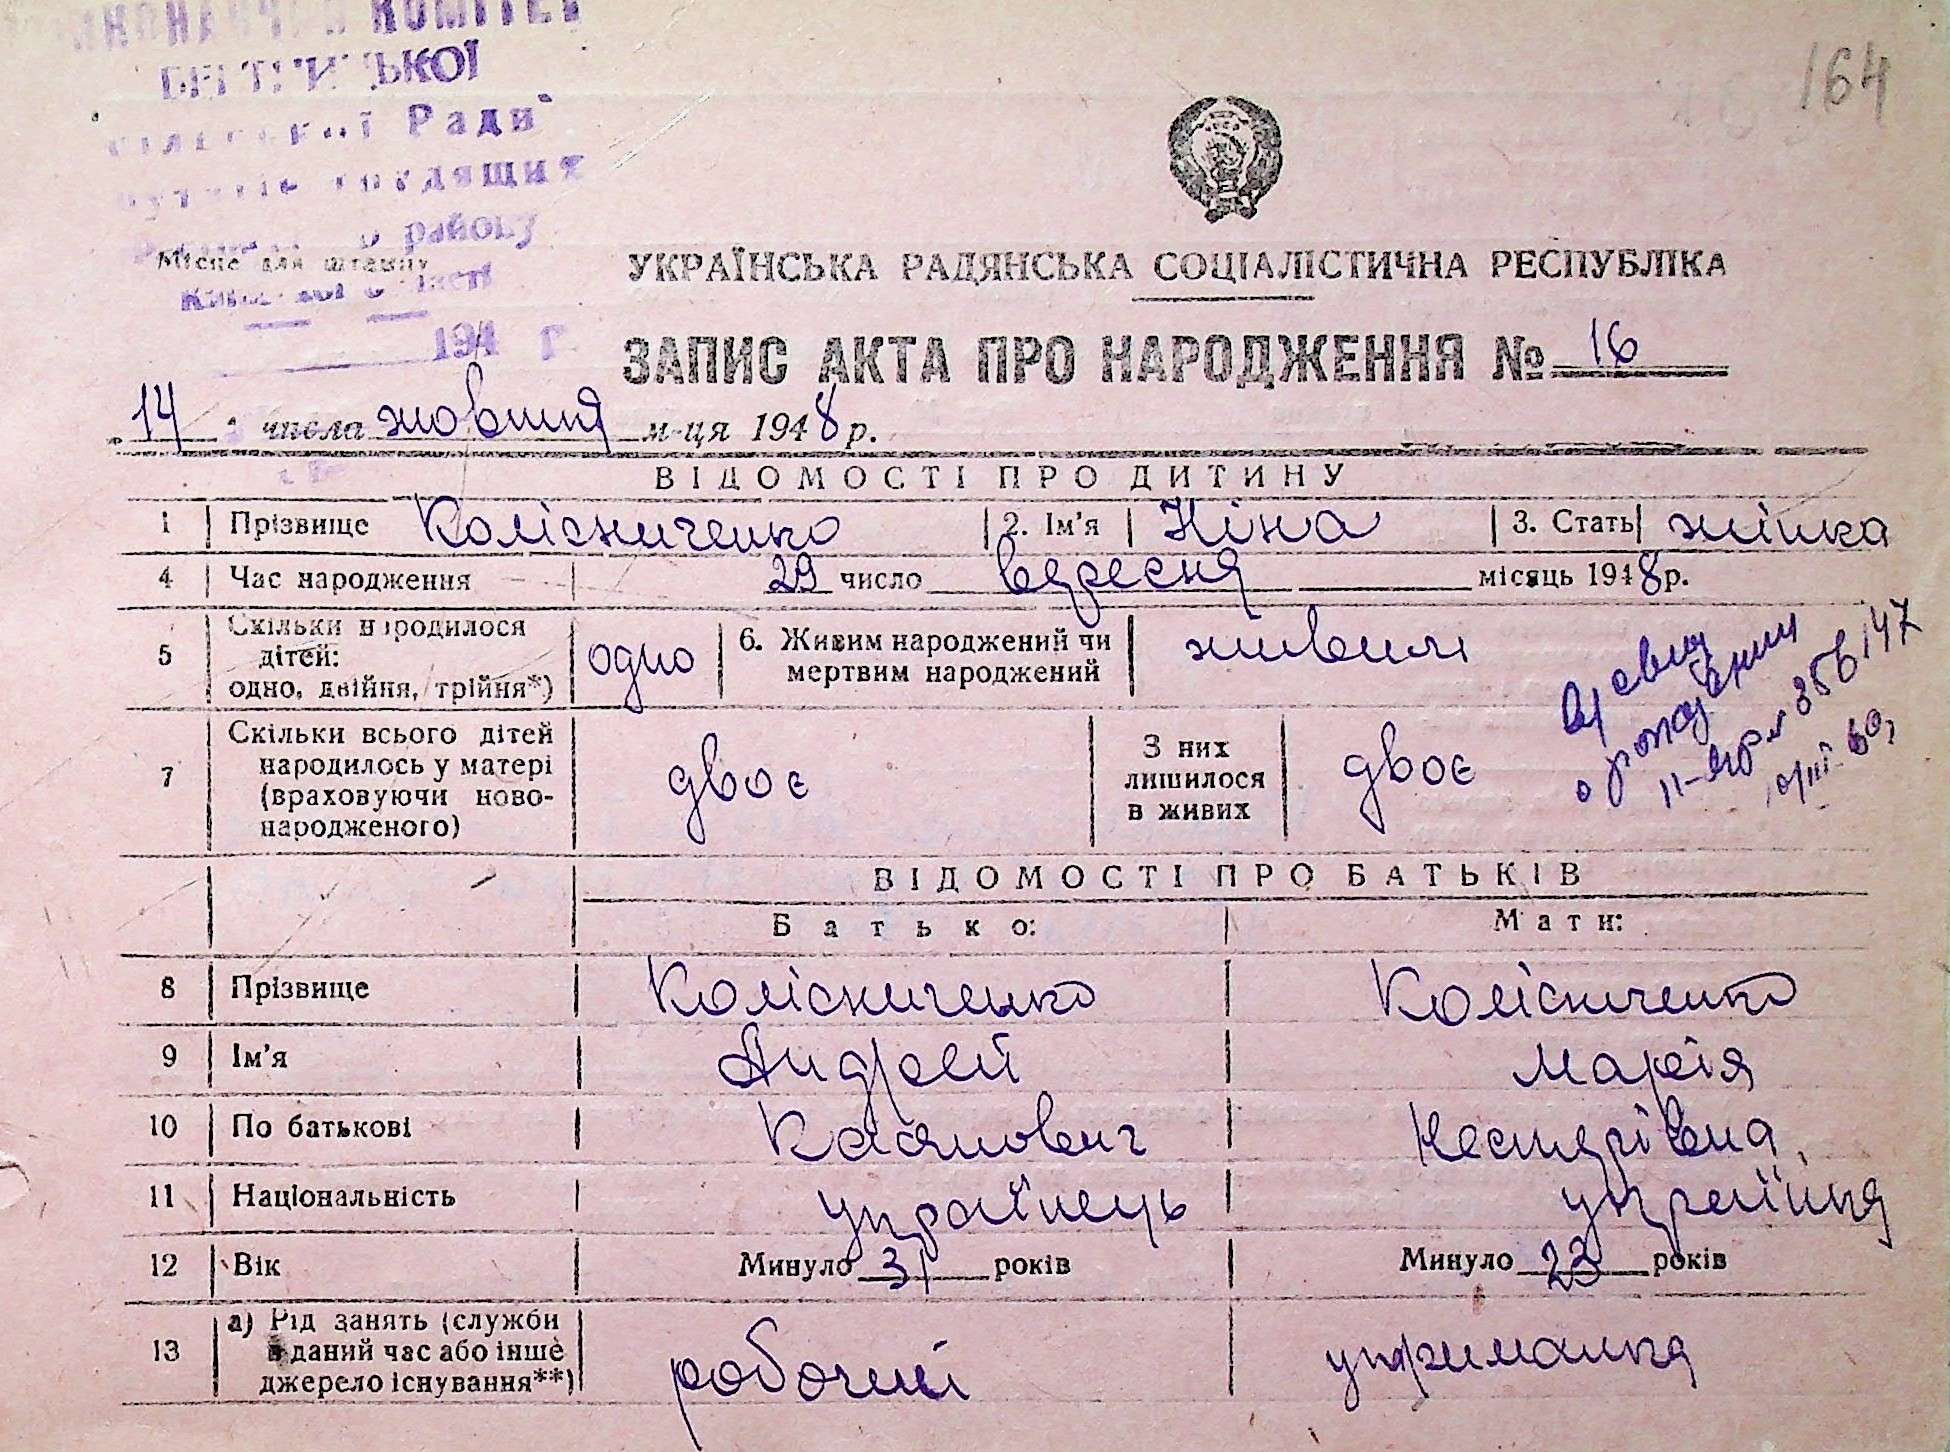 164
КОМІТЕТ
Ради
району
Місце для штампу
194 г
УКРАЇНСЬКА РАДЯНСЬКА СОЦІАЛІСТИЧНА РЕСПУБЛІКА
ЗАПИС АКТА ПРО НАРОДЖЕННЯ № 16
14 числа жовтня м-ця 1948 р.
ВІДОМОСТІ ПРО ДИТИНУ
1 Прізвище Колісниченко 2. Ім'я Ніна 3. Стать жінка
4 Час народження 29 число вересня місяць 1948 р.
5 Скільки народилося дітей: одно, двійня, трійня*) одно 6. Живим народжений чи мертвим народжений живим
7 Скільки всього дітей народилось у матері (враховуючи ново-народженого) двоє З них лишилося в живих двоє
ВІДОМОСТІ ПРО БАТЬКІВ
Батько: Мати:
8 Прізвище Колісниченко Колісниченко
9 Ім'я Андрей Марія
10 По батькові Касянович Нестерівна
11 Національність українець українка
12 Вік Минуло 31 років Минуло 23 років
13 а) Рід занять (служби в даний час або інше джерело існування**) робочий утриманка